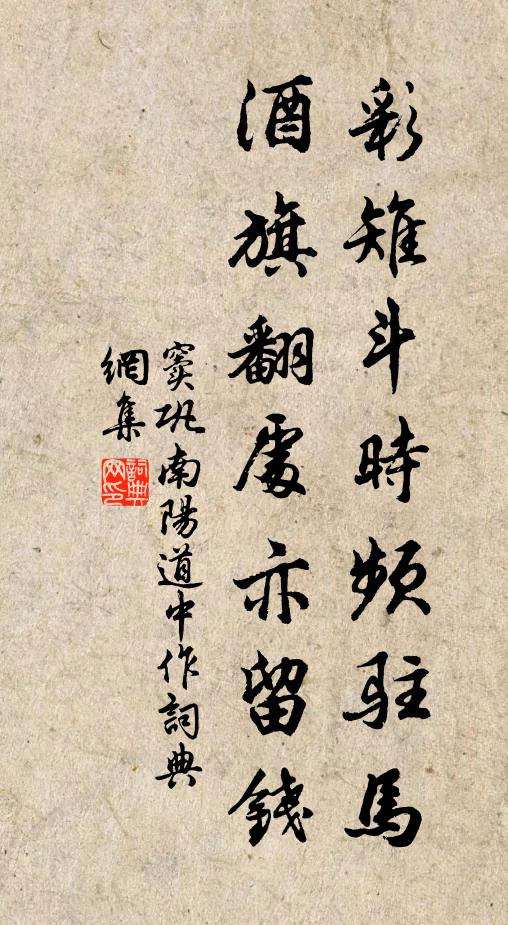 彩雉斗時頻駐馬
酒旗翻處亦留錢
竇巩南陽道中作詞典
網集
詞典網印